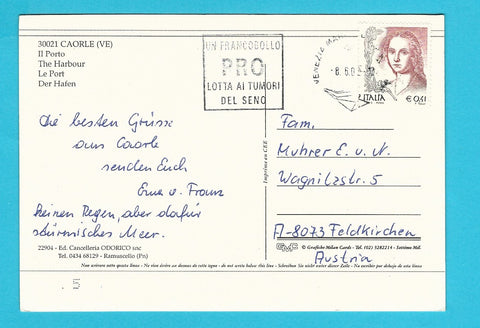 30021 CAORLE (VE)
Il Porto
The Harbour
Le Port
Der Hafen
UN FRANCOBOLLO
PRO
LOTTA AI TUMORI
DEL SENO
VENEZIA
- 8.6.0
ITALIA
€ 0,41
Die besten Grüsse
aus Caorle
senden Euch
Erna u. Franz
keinen Regen, aber dafür
stürmisches Meer.
22904 - Ed. Cancelleria ODORICO snc
Tel. 0434 68129 - Ramuscello (Pn)
Imprimé en C.E.E.
Fam.
Muhrer E. u. N.
Wagnitzstr. 5
A-8073 Feldkirchen
Austria
© Grafiche Milan Cards - Tel. (02) 5282214 - Settimo Mil.
Non scrivere sotto questa linea - Ne rien écrire au dessous de cette ligne - do not write below this line - Schreiben Sie nicht unter dieser Zeile - No escribir por debajo de esta línea
5